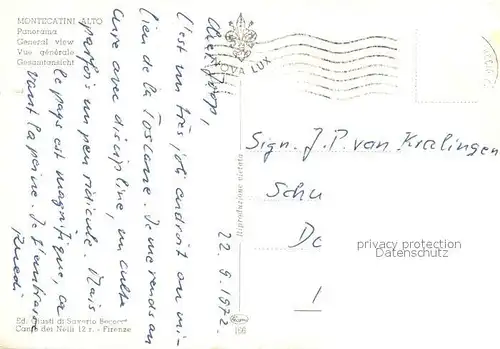 MONTECATINI ALTO
Panorama
General view
Vue générale
Gesamtansicht
NOVA LUX
22.9.1972.
Cher Joop,
C'est un très joli endroit au mi-
lieu de la Toscane. Je me rends au
cure avec discipline, un culte
parfois un peu ridicule. Mais
le pays est magnifique, ça
vaut la peine. Je t'embrasse
Ruedi
Sign. J.P. van Kralingen
Schu
Do
privacy protection
Datenschutz
Riproduzione vietata
166
Ed. Giusti di Saverio Becocci
Canto dei Nelli 12 r. - Firenze